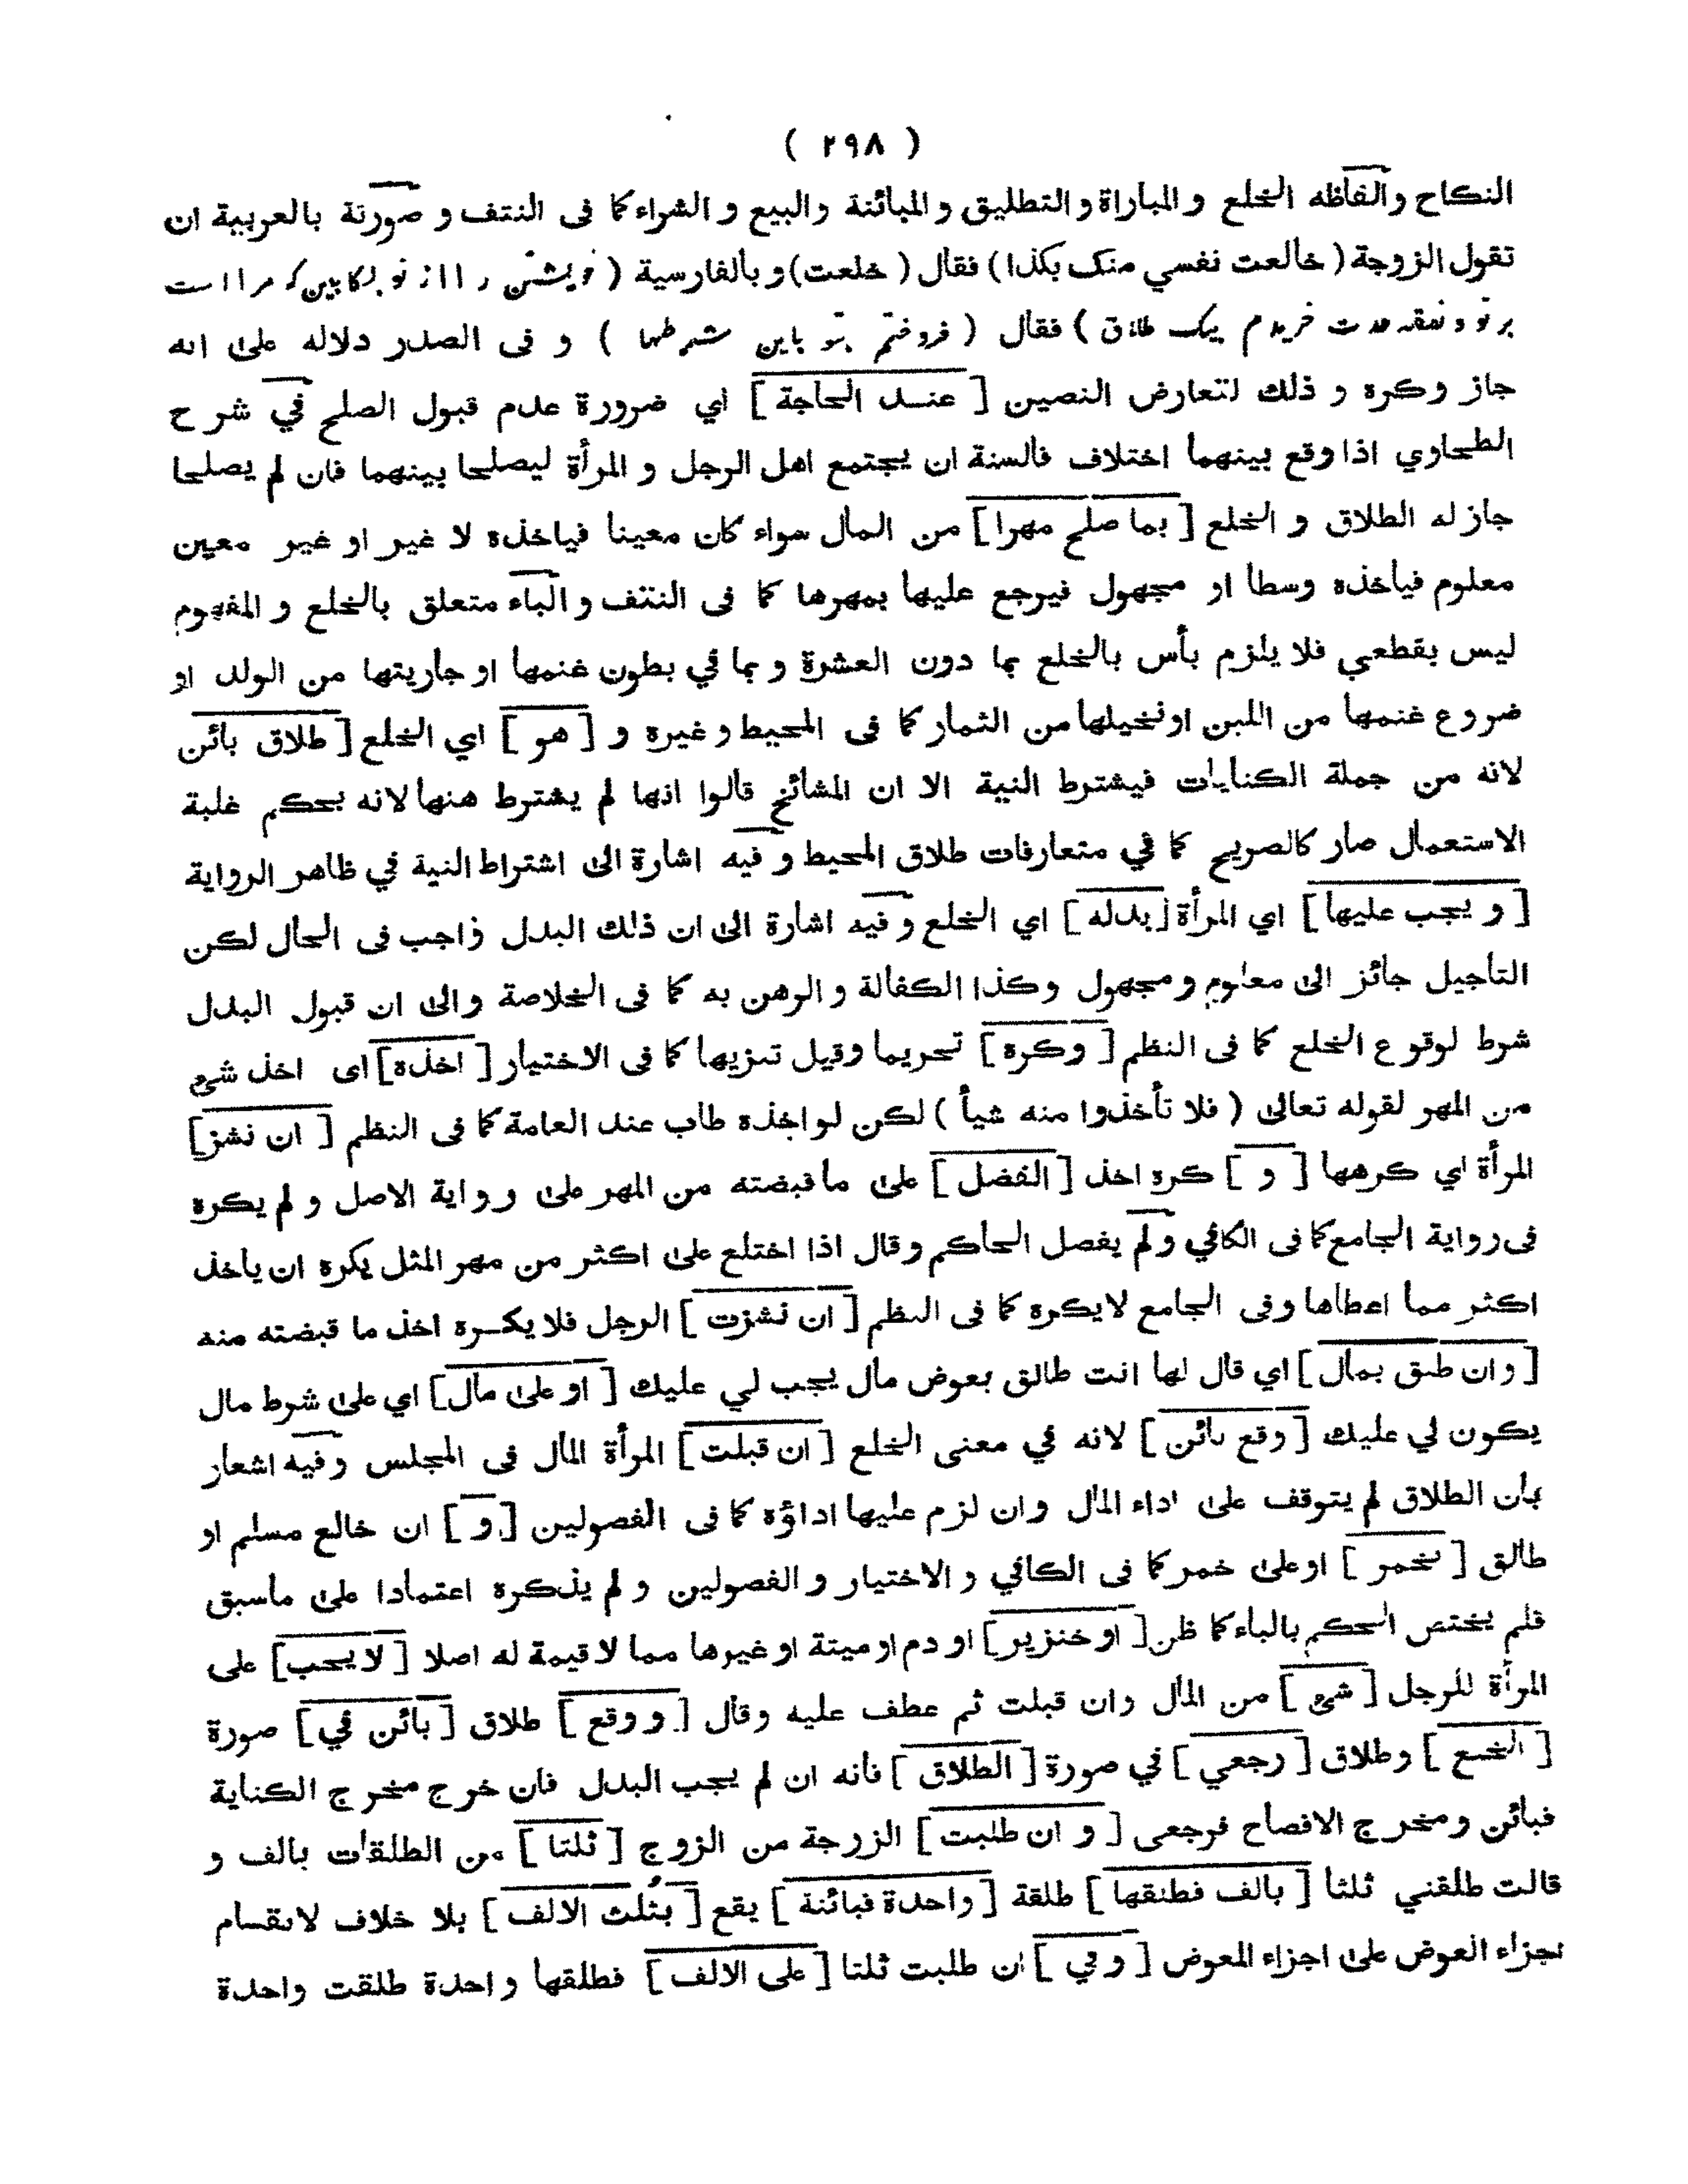 ( ٢٩٨ )
النكاح والفاظه الخلع و المباراة و التطليق و المبائنة والبيع و الشراء كما فى النتف و صورتة بالعربية ان
تقول الزوجة ( خالعت نفسي منک بكذا ) فقال ( خلعت ) و بالفارسية ( خويشتن را از تو بكابين كه مرا است
بر تو و نفقه عدت خريدم بيک طلاق ) فقال ( فروختم بتو باين شرطها ) و فى الصدر دلاله على انه
جاز وكره و ذلك لتعارض النصين [ عنـد الحاجة ] اي ضرورة عدم قبول الصلح في شرح
الطحاوي اذا وقع بينهما اختلاف فالسنة ان يجتمع اهل الرجل و المرأة ليصلحا بينهما فان لم يصلحا
جاز له الطلاق و الخلع [ بما صلح مهرا ] من المال سواء كان معينا فياخذه لا غير او غير معين
معلوم فيأخذه وسطا او مجهول فيرجع عليها بمهرها كما فى النتف و الباء متعلق بالخلع و المفهوم
ليس بقطعي فلا يلزم بأس بالخلع بما دون العشرة و بما في بطون غنمها او جاريتها من الولد او
ضروع غنمها من اللبن او نخيلها من الثمار كما فى المحيط و غيره و [ هو ] اي الخلع [ طلاق بائن
لانه من جملة الكنايات فيشترط النية الا ان المشائخ قالوا انها لم يشترط هنها لانه بحكم غلبة
الاستعمال صار كالصريح كما في متعارفات طلاق المحيط و فيه اشارة الى اشتراط النية في ظاهر الرواية
[ و يجب عليها ] اي المرأة [ بدله ] اي الخلع و فيه اشارة الى ان ذلك البدل واجب فى الحال لكن
التأجيل جائز الى معلوم و مجهول وكذا الكفالة و الرهن به كما فى الخلاصة والى ان قبول البدل
شرط لوقوع الخلع كما فى النظم [ وكره ] تحريما وقيل تنزيها كما فى الاختيار [ اخذه ] اى اخذ شئ
من المهر لقوله تعالى ( فلا تأخذوا منه شيأ ) لكن لو اخذه طاب عند العامة كما فى النظم [ ان نشز ]
المرأة اي كرهها [ و ] كره اخذ [ الفضل ] على ما قبضته من المهر على رواية الاصل و لم يكره
فى رواية الجامع كما فى الكافي و لم يفصل الحاكم وقال اذا اختلع على اكثر من مهر المثل يكره ان ياخذ
اكثر مما اعطاها وفى الجامع لا يكره كما فى النظم [ ان نشزت ] الرجل فلا يكـره اخذ ما قبضته منه
[ و ان طلق بمال ] اي قال لها انت طالق بعوض مال يجب لي عليك [ او على مال ] اي على شرط مال
يكون لي عليك [ وقع بائن ] لانه في معنى الخلع [ ان قبلت ] المرأة المال فى المجلس و فيه اشعار
بان الطلاق لم يتوقف على اداء المال وان لزم عليها اداؤه كما فى الفصولين [ و ] ان خالع مسلم او
طالق [ بخمر ] او على خمر كما فى الكافي و الاختيار و الفصولين و لم يذكره اعتمادا على ماسبق
فلم يختص الحكم بالباء كما ظن [ او خنزير ] او دم او ميتة او غيرها مما لا قيمة له اصلا [ لا يجب ] على
المرأة للرجل [ شئ ] من المال وان قبلت ثم عطف عليه وقال [ و وقع ] طلاق [ بائن في ] صورة
[ الخلع ] وطلاق [ رجعي ] في صورة [ الطلاق ] فانه ان لم يجب البدل فان خرج مخرج الكناية
فبائن و مخرج الافصاح فرجعى [ و ان طلبت ] الزوجة من الزوج [ ثلثا ] من الطلقات بالف و
قالت طلقني ثلثا [ بالف فطلقها ] طلقة [ واحدة فبائنة ] يقع [ بثلث الالف ] بلا خلاف لانقسام
اجزاء العوض على اجزاء المعوض [ و في ] ان طلبت ثلثا [ على الالف ] فطلقها و احدة طلقت واحدة